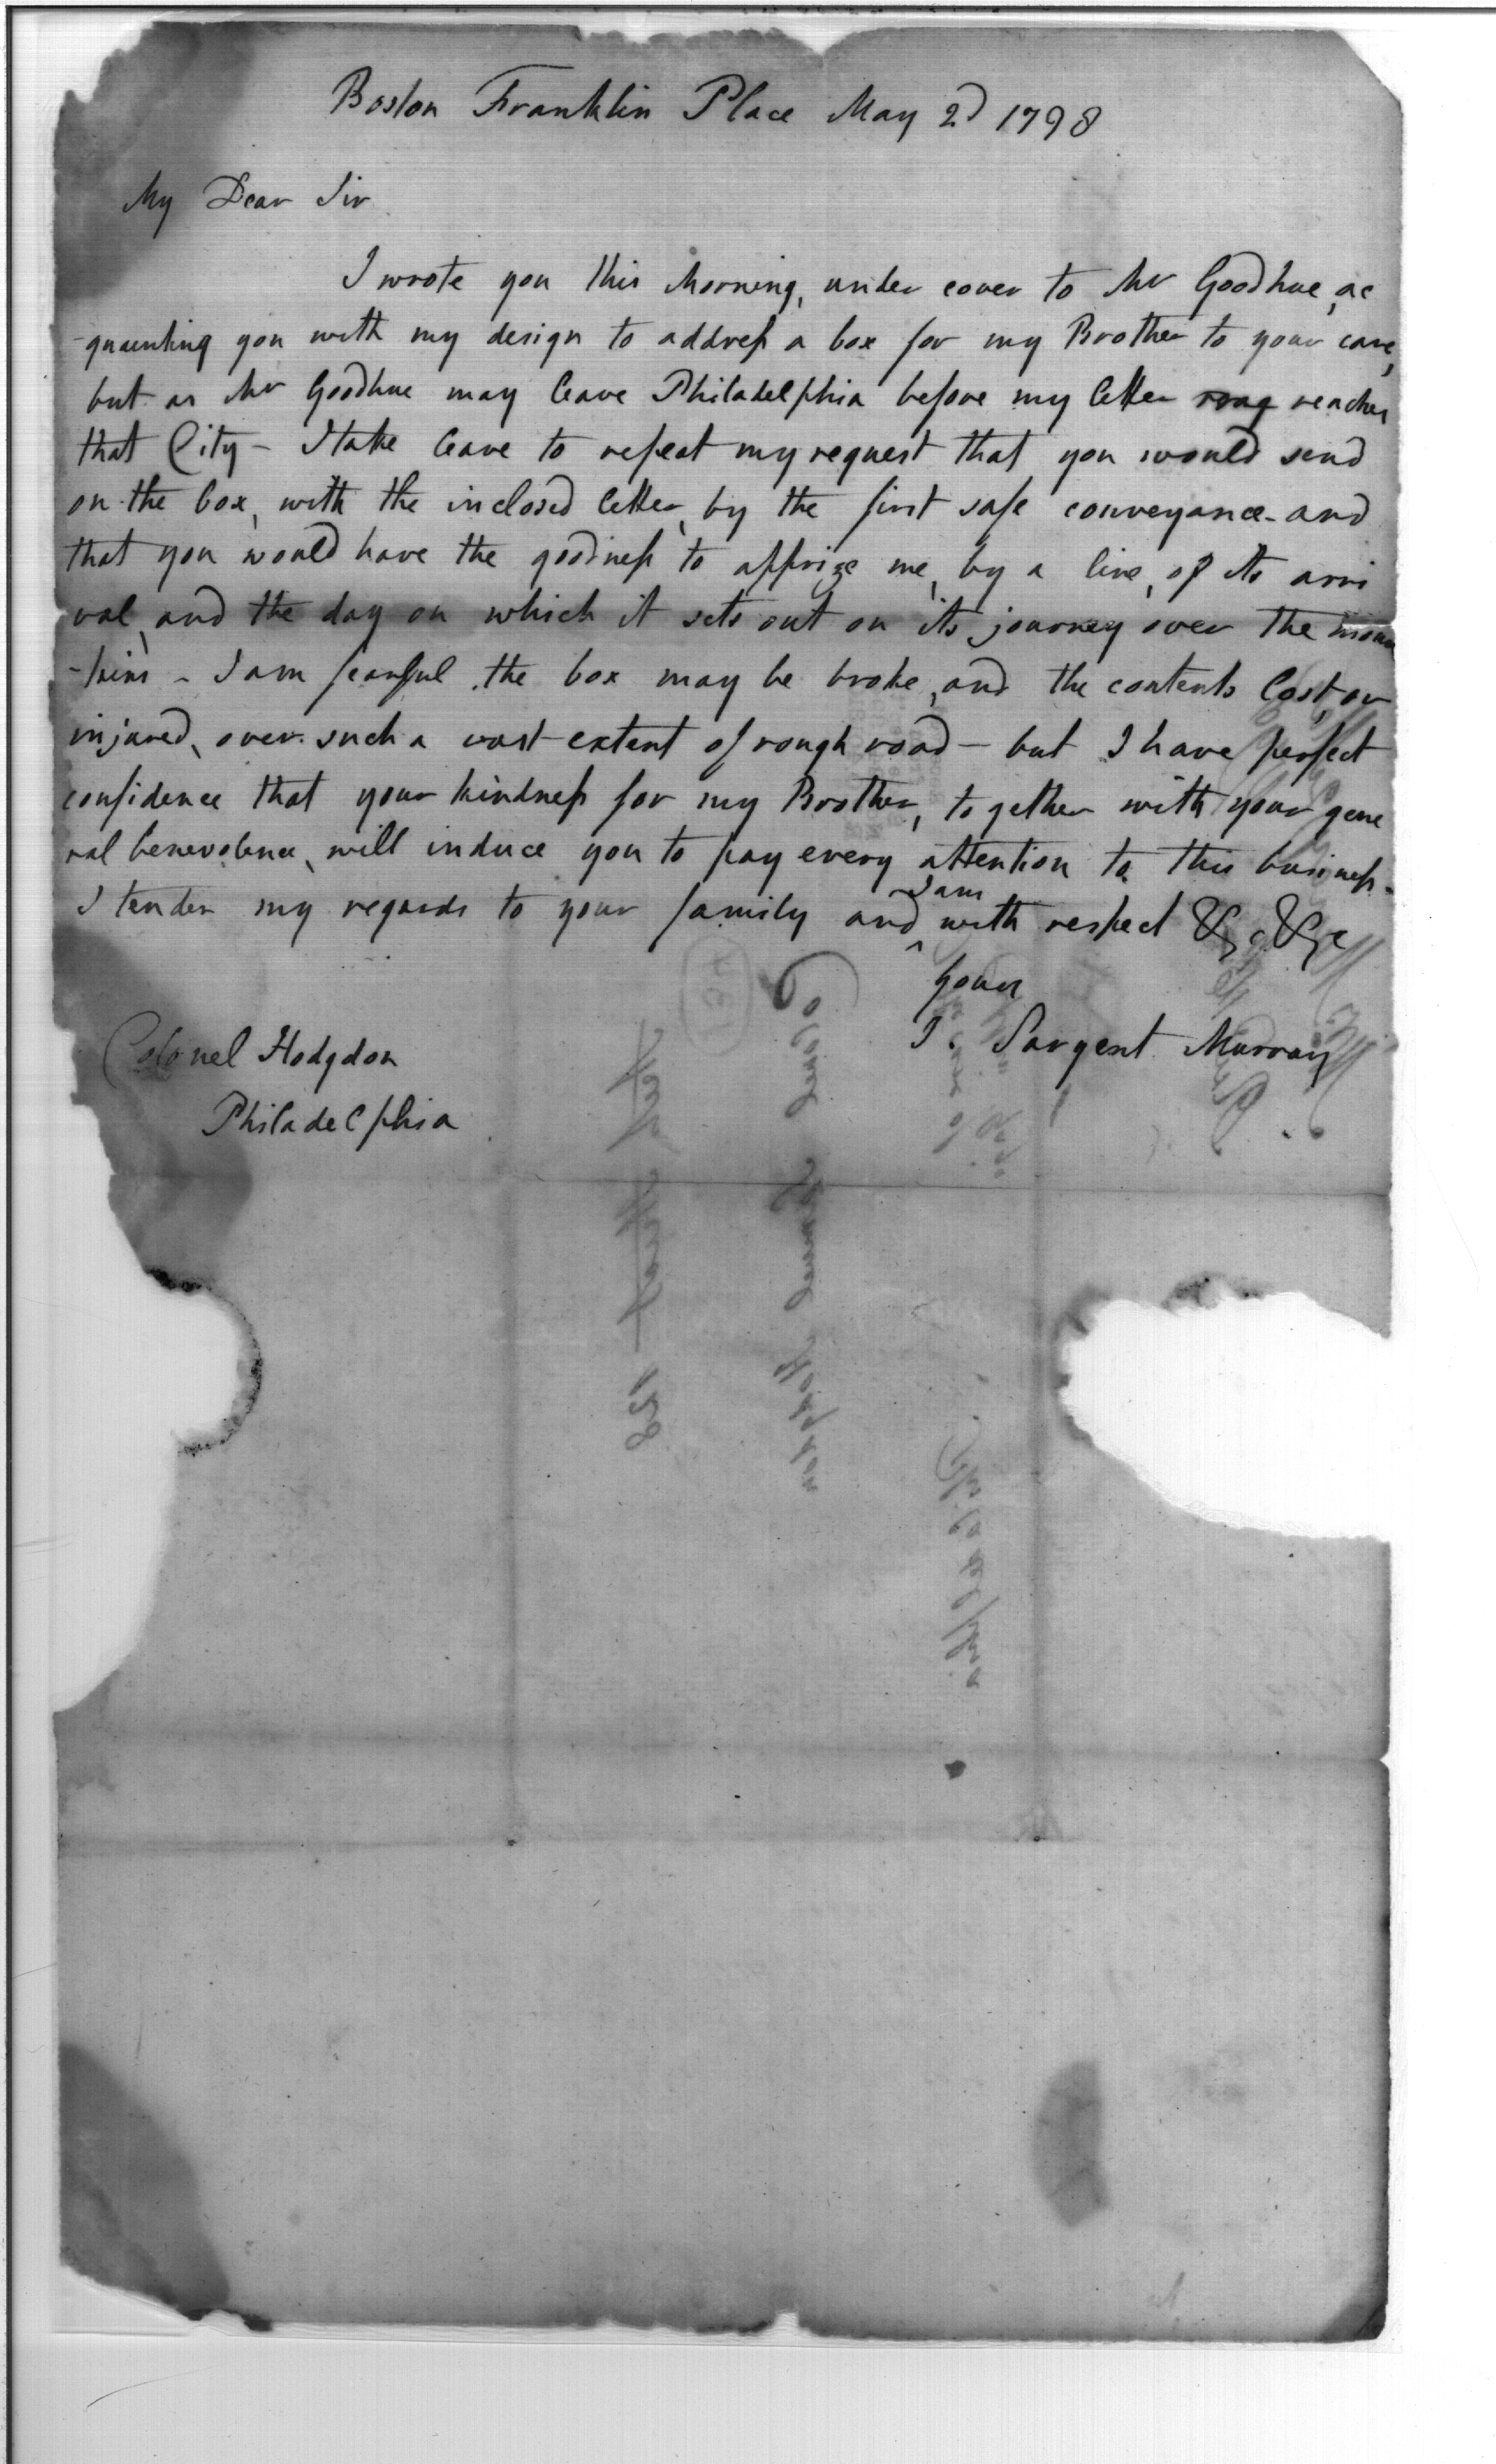 Boston Franklin Place May 2d 1798
My Dear Sir
I wrote you this Morning, under cover to Mr Goodhue, ac
-quainting you with my design to address a box for my Brother to your care,
but as Mr Goodhue may leave Philadelphia before my letter reaches
that City - I take leave to repeat my request that you would send
on the box, with the inclosed letter, by the first safe conveyance - and
that you would have the goodness to apprize me, by a line, of its arri
val, and the day on which it sets out on its journey over the moun
-tains - I am fearful the box may be broke, and the contents lost, or
injured, over such a vast extent of rough road - but I have perfect
confidence that your kindness for my Brother, together with your gene
ral benevolence, will induce you to pay every attention to this business -
I tender my regards to your family and ^I am with respect &c &c
Yours
J. Sargent Murray
Colonel Hodgdon
Philadelphia
Colonel Samuel Hodgdon
Philadelphia